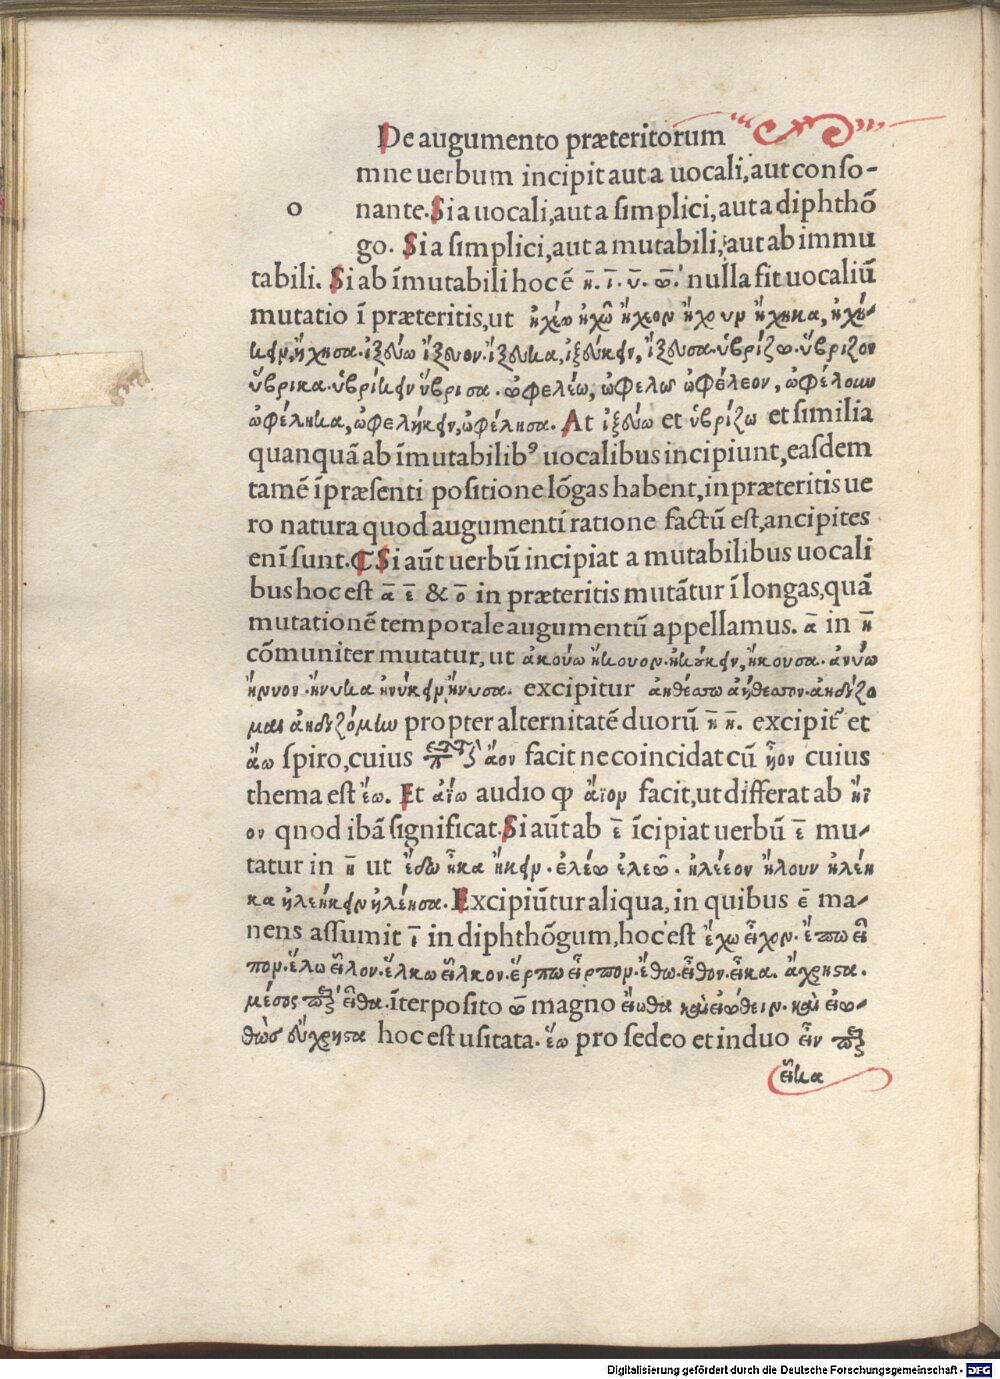 De augumento præteritorum
mne uerbum incipit aut a uocali, aut conso-
o nante. Si a uocali, aut a simplici, aut a diphthō
go. Si a simplici, aut a mutabili, aut ab immu
tabili. Si ab īmutabili hoc ē η̄. ῑ. ῡ. ω̄. nulla fit uocaliū
mutatio ī præteritis, ut ἠχέω ἠχῶ ἤχεον ἤχουν ἤχηκα, ἠχή-
κειν, ἤχησα. ἰξεύω ἴξευον. ἴξευκα, ἰξεύκειν, ἴξευσα. ὑβρίζω. ὕβριζον
ὕβρικα. ὑβρίκειν ὕβρισα. ὠφελέω, ὠφελῶ ὠφέλεον, ὠφέλουν
ὠφέληκα, ὠφελήκειν, ὠφέλησα. At ἰξεύω et ὑβρίζω et similia
quanquā ab īmutabilibꝰ uocalibus incipiunt, easdem
tamē ī præsenti positione lōgas habent, in præteritis ue
ro natura quod augumenti ratione factū est, ancipites
enī sunt. ¶ Si aūt uerbū incipiat a mutabilibus uocali
bus hoc est ᾱ ε̄ & ο̄ in præteritis mutātur ī longas, quā
mutationē temporale augumentū appellamus. ᾱ in η̄
cōmuniter mutatur, ut ἀκούω ἤκουον. ἠκούκειν, ἤκουσα. ἀνύω
ἤνυον. ἤνυκα ἠνύκειν ἤνυσα. excipitur ἀηθέσσω ἀήθεσσον. ἀηδίζο
μαι ἀηδιζόμην propter alternitatē duorū η̄ η̄. excipit᷑ et
ἄω spiro, cuius ἄον facit ne coincidat cū ἦον cuius
thema est ἔω. Et ἀΐω audio ꝙ ἄϊον facit, ut differat ab ἤϊ
ον qnod ibā significat. Si aūt ab ε̄ īcipiat uerbū ε̄ mu-
tatur in η̄ ut ἕδω ἧκα ἥκειν. ἐλέω ἐλεῶ. ἠλέεον ἤλουν ἠλέη
κα ἠλεήκειν ἠλέησα. Excipiūtur aliqua, in quibus ε̄ ma-
nens assumit ῑ in diphthōgum, hoc est ἔχω εἶχον. ἕπω εἷ
πον. ἕλω εἷλον. ἕλκω εἷλκον. ἕρπω εἷρπον. ἔθω. εἶθον. εἶκα. ἄχρηστα.
μέσος εἶθα. īterposito ω̄ magno εἴωθα καὶ εἰώθειν. καὶ εἰω-
θὼς εὔχρηστα hoc est usitata. ἕω pro sedeo et induo εἷν
εἷκα
Digitalisierung gefördert durch die Deutsche Forschungsgemeinschaft - DFG